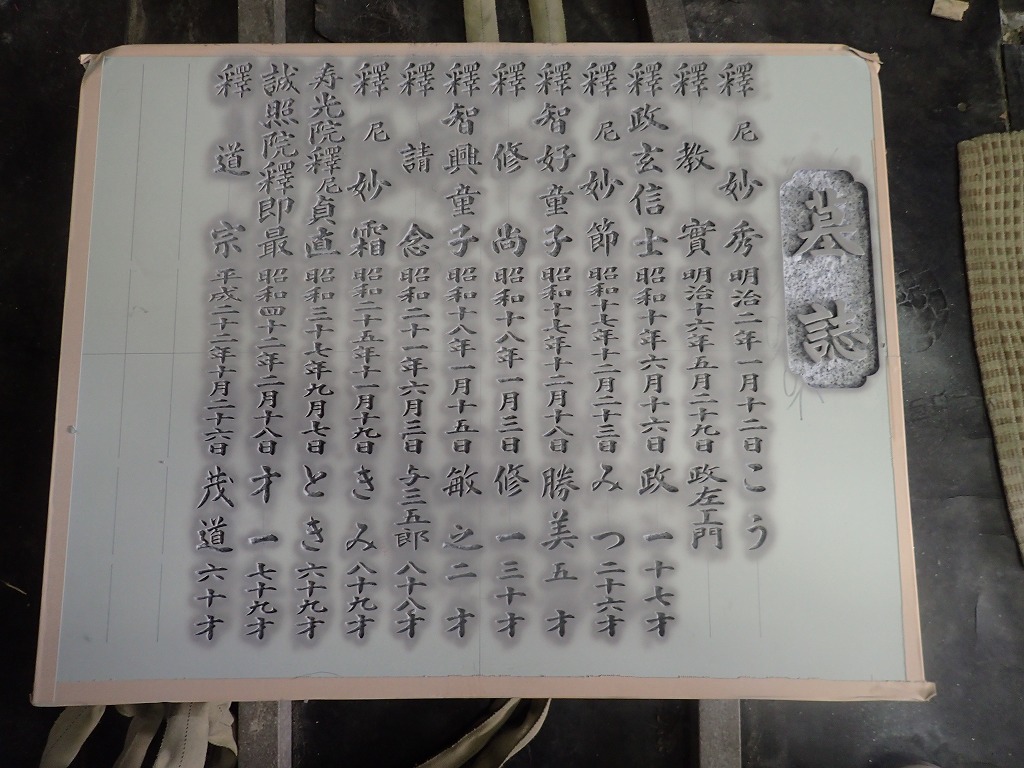 墓誌
釋尼妙秀 明治二年一月十二日 こう
釋教實 明治十六年五月二十九日 政左エ門
釋政玄信士 昭和十年六月十六日 政一 十七才
釋尼妙節 昭和十七年十二月二十三日 みつ 二十六才
釋智好童子 昭和十七年十二月十八日 勝美 五才
釋修尚 昭和十八年一月三日 修一 三十才
釋智興童子 昭和十八年一月十五日 敏之 二才
釋請念 昭和二十一年六月三日 与三五郎 八十八才
釋尼妙霜 昭和二十五年十一月十九日 きみ 八十九才
寿光院釋尼貞直 昭和三十七年九月七日 とき 六十九才
誠照院釋即最 昭和四十二年二月十八日 才一 七十九才
釋道宗 平成二十二年十月二十六日 茂道 六十才